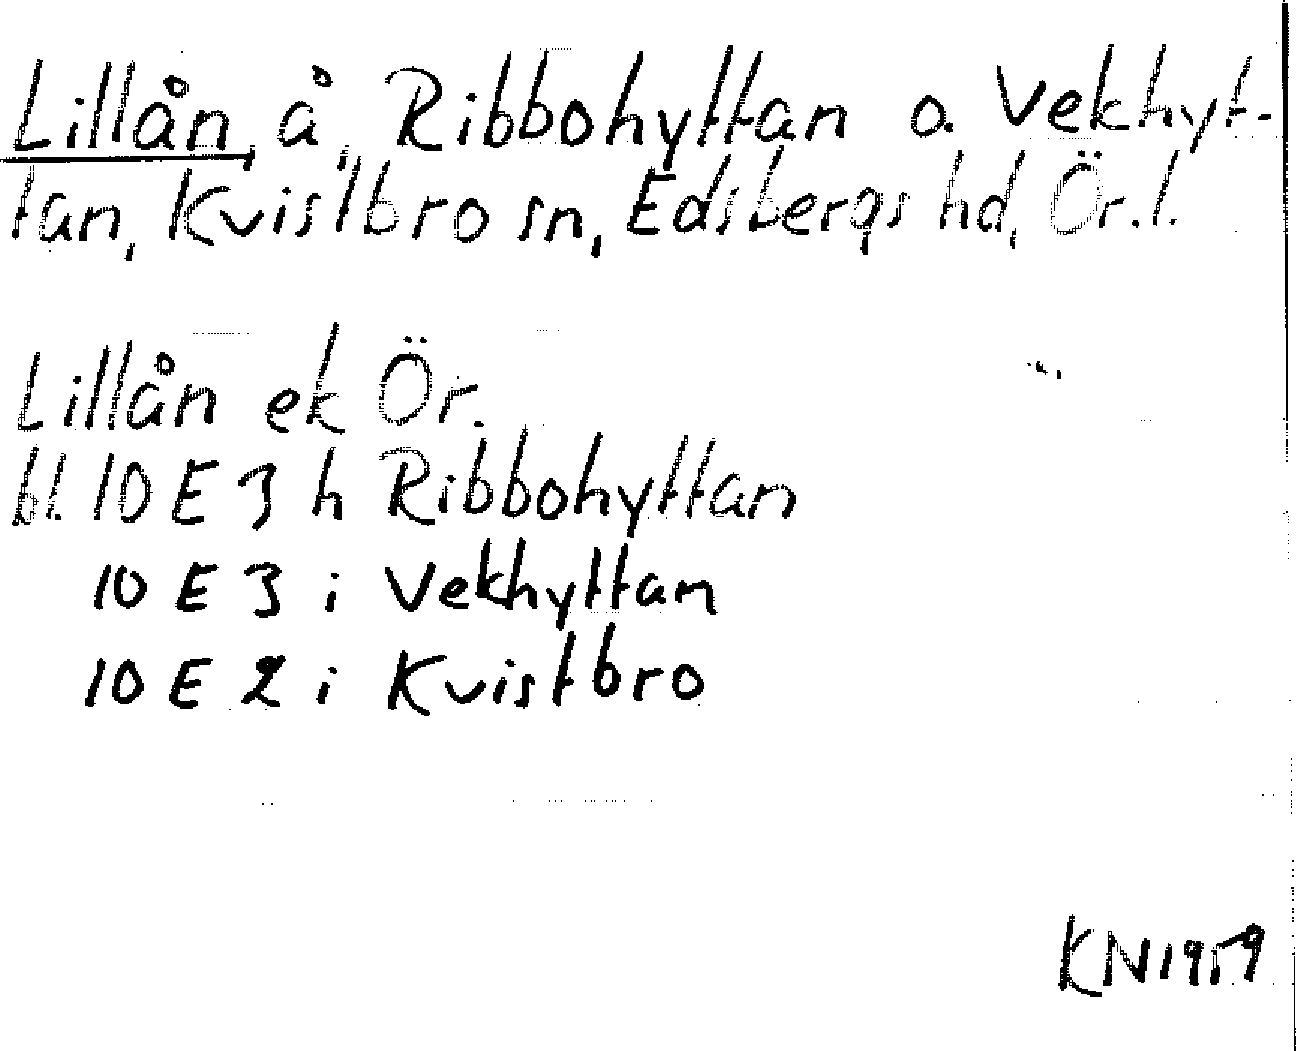 Lillån, å, Ribbohyttan o. Vekhyt-
tan, Kvistbro sn, Edsbergs hd, Ör. l.
Lillån ek Ör.
bl. 10 E 3 h Ribbohyttan
10 E 3 i Vekhyttan
10 E 2 i Kvistbro
KN 1959